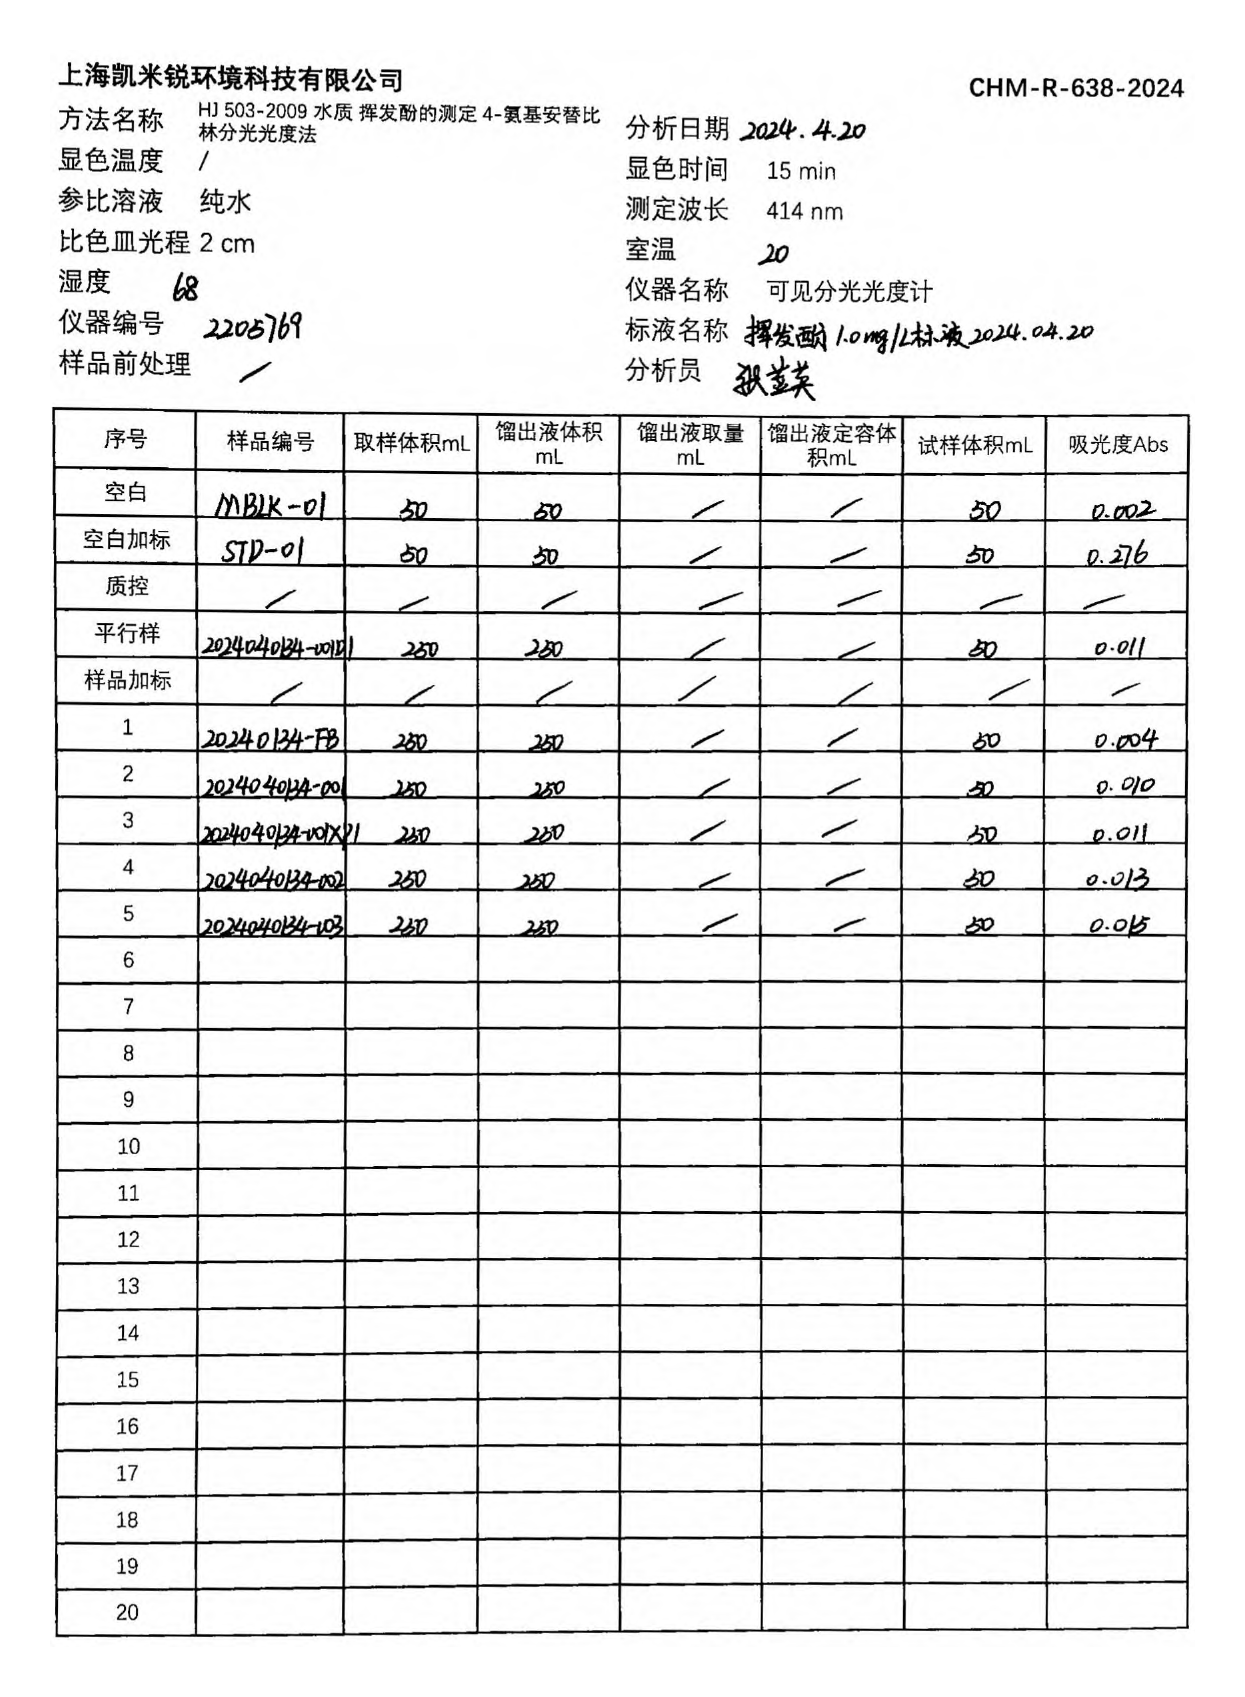 上海凯米锐环境科技有限公司
CHM-R-638-2024
方法名称 HJ 503-2009 水质 挥发酚的测定 4-氨基安替比林分光光度法
分析日期 2024.4.20
显色温度 /
显色时间 15 min
参比溶液 纯水
测定波长 414 nm
比色皿光程 2 cm
室温 20
湿度 68
仪器名称 可见分光光度计
仪器编号 2205769
标液名称 挥发酚1.0mg/L标液2024.04.20
样品前处理 /
分析员 张
序号 样品编号 取样体积mL 馏出液体积mL 馏出液取量mL 馏出液定容体积mL 试样体积mL 吸光度Abs
空白 MBLK-01 50 50 / / 50 0.002
空白加标 STD-01 50 50 / / 50 0.276
质控 / / / / / / /
平行样 2024040134-001D1 250 250 / / 50 0.011
样品加标 / / / / / / /
1 20240134-FB 250 250 / / 50 0.004
2 2024040134-001 250 250 / / 50 0.010
3 2024040134-001XP1 250 250 / / 50 0.011
4 2024040134-002 250 250 / / 50 0.013
5 2024040134-003 250 250 / / 50 0.015
6
7
8
9
10
11
12
13
14
15
16
17
18
19
20